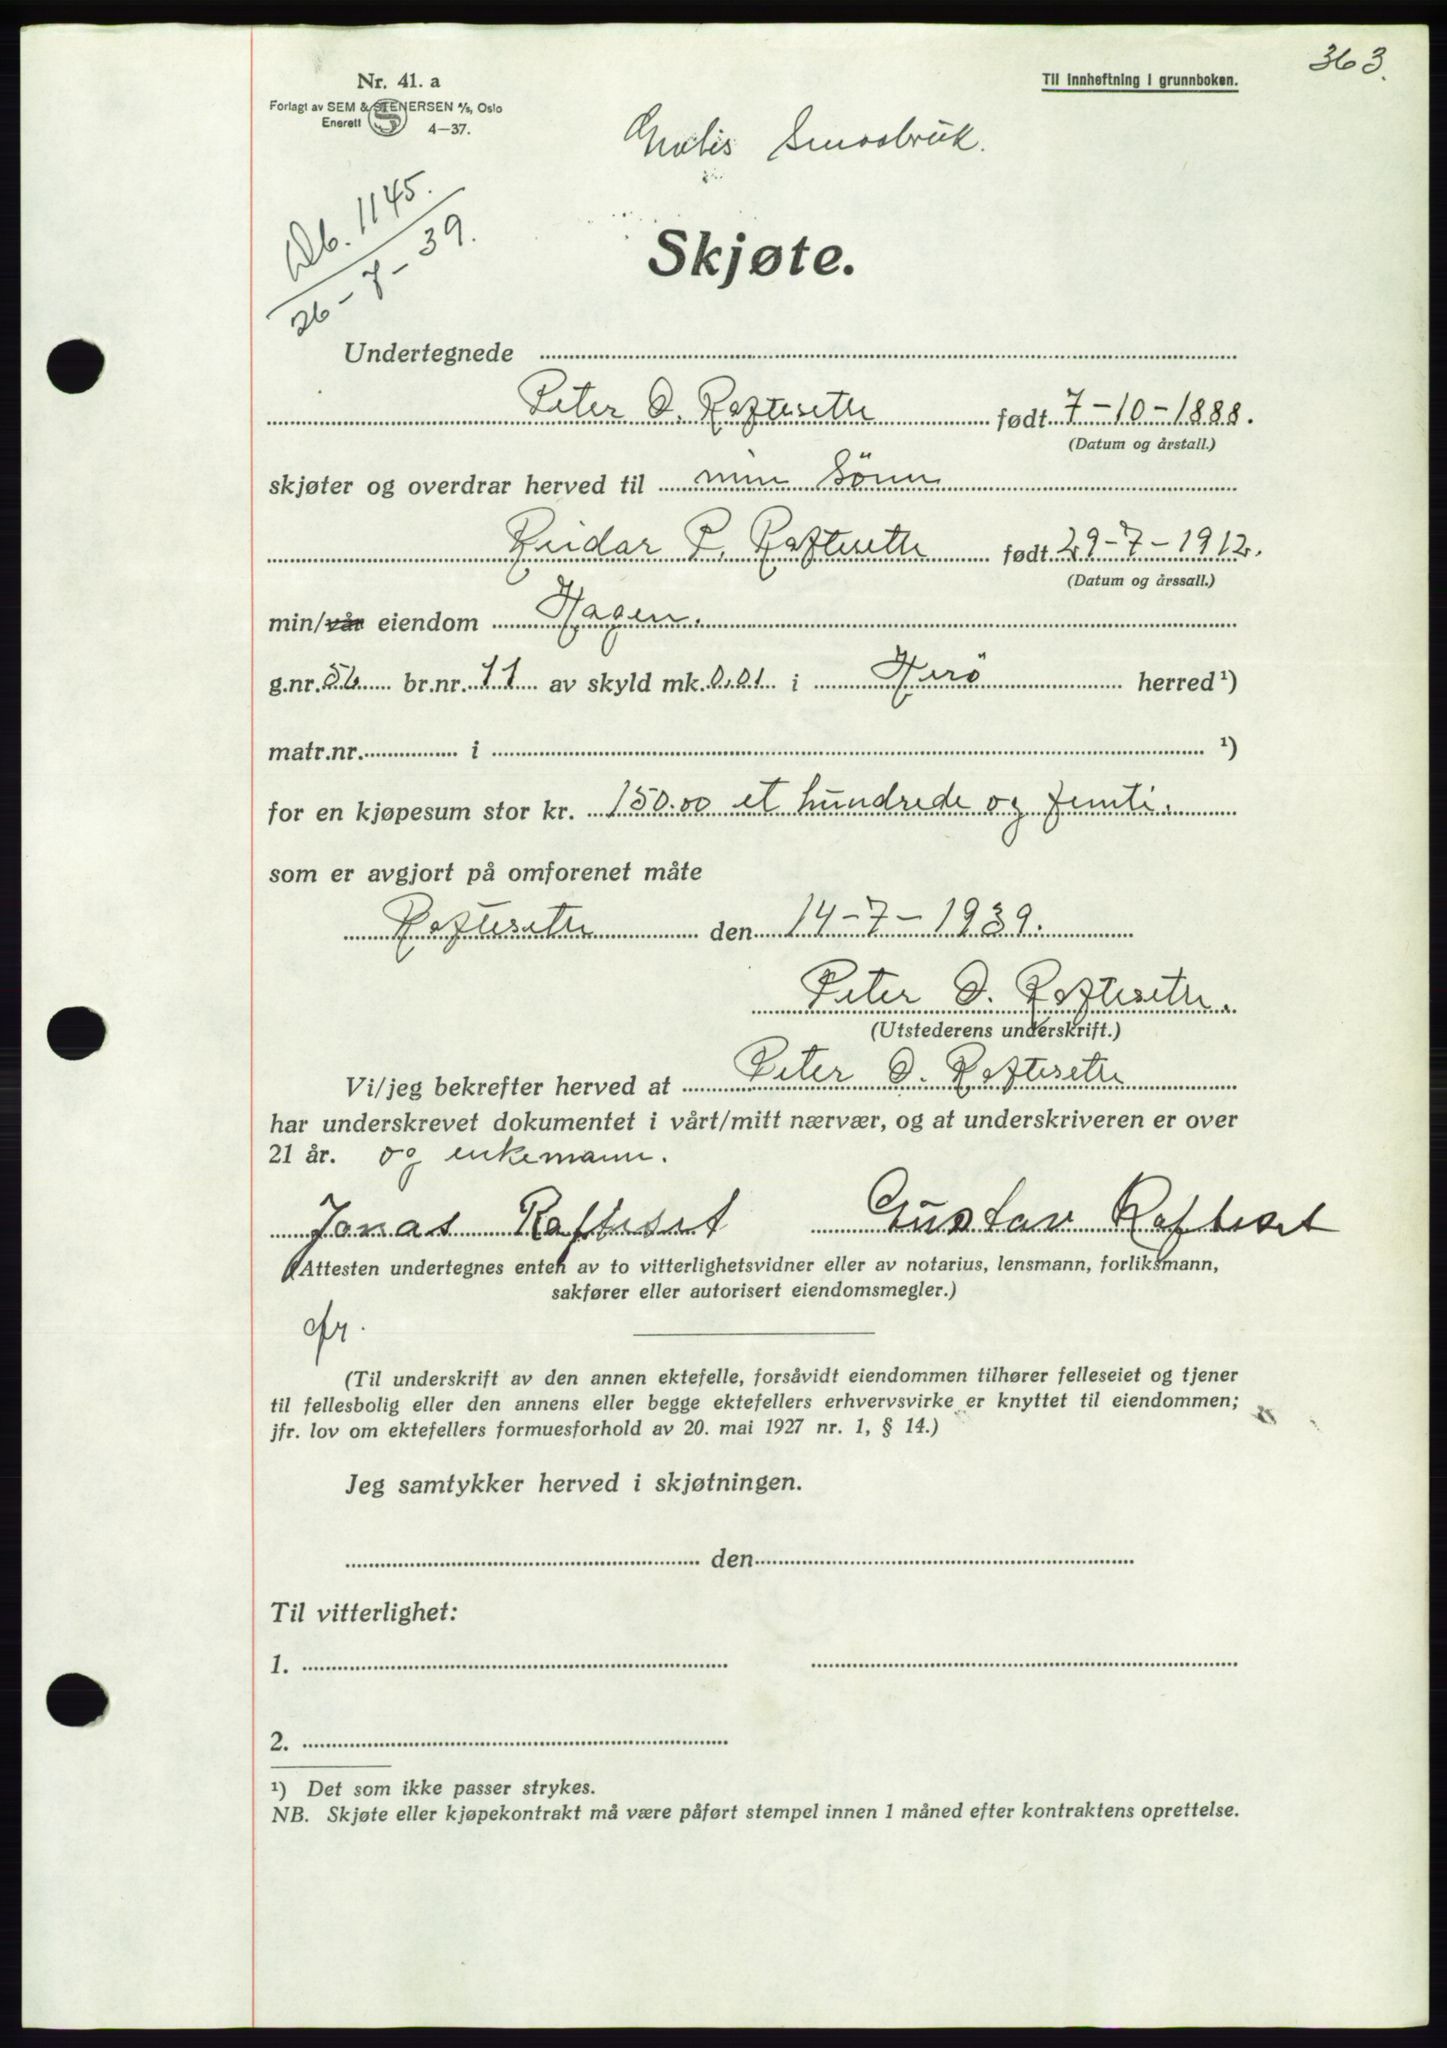 363.
Nr. 41. a
Til innheftning i grunnboken.
Forlagt av SEM & STENERSEN A/S, Oslo
Enerett
4—37.
Gratis Smaabruk.
Db. 1145.
26-7-39.
Skjøte.
Undertegnede
Peter O. Raftesethe født 7-10-1888.
(Datum og årstall.)
skjøter og overdrar herved til min Sönn
Reidar P. Raftesethe født 29-7-1912.
(Datum og årssall.)
min/vår eiendom Hagen.
g.nr. 56 br.nr. 11 av skyld mk. 0.01 i Herö herred ¹)
matr.nr. i ¹)
for en kjøpesum stor kr. 150.00 et hundrede og femti.
som er avgjort på omforenet måte
Raftesethe den 14-7-1939.
Peter O. Raftesethe.
(Utstederens underskrift.)
Vi/jeg bekrefter herved at Peter O. Raftesethe
har underskrevet dokumentet i vårt/mitt nærvær, og at underskriveren er over
21 år. og enkemann.
Jonas Rafteset Gustav Rafteset
(Attesten undertegnes enten av to vitterlighetsvidner eller av notarius, lensmann, forliksmann,
sakfører eller autorisert eiendomsmegler.)
(Til underskrift av den annen ektefelle, forsåvidt eiendommen tilhører felleseiet og tjener
til fellesbolig eller den annens eller begge ektefellers erhvervsvirke er knyttet til eiendommen;
jfr. lov om ektefellers formuesforhold av 20. mai 1927 nr. 1, § 14.)
Jeg samtykker herved i skjøtningen.
den
Til vitterlighet:
1.
2.
¹) Det som ikke passer strykes.
NB. Skjøte eller kjøpekontrakt må være påført stempel innen 1 måned efter kontraktens oprettelse.